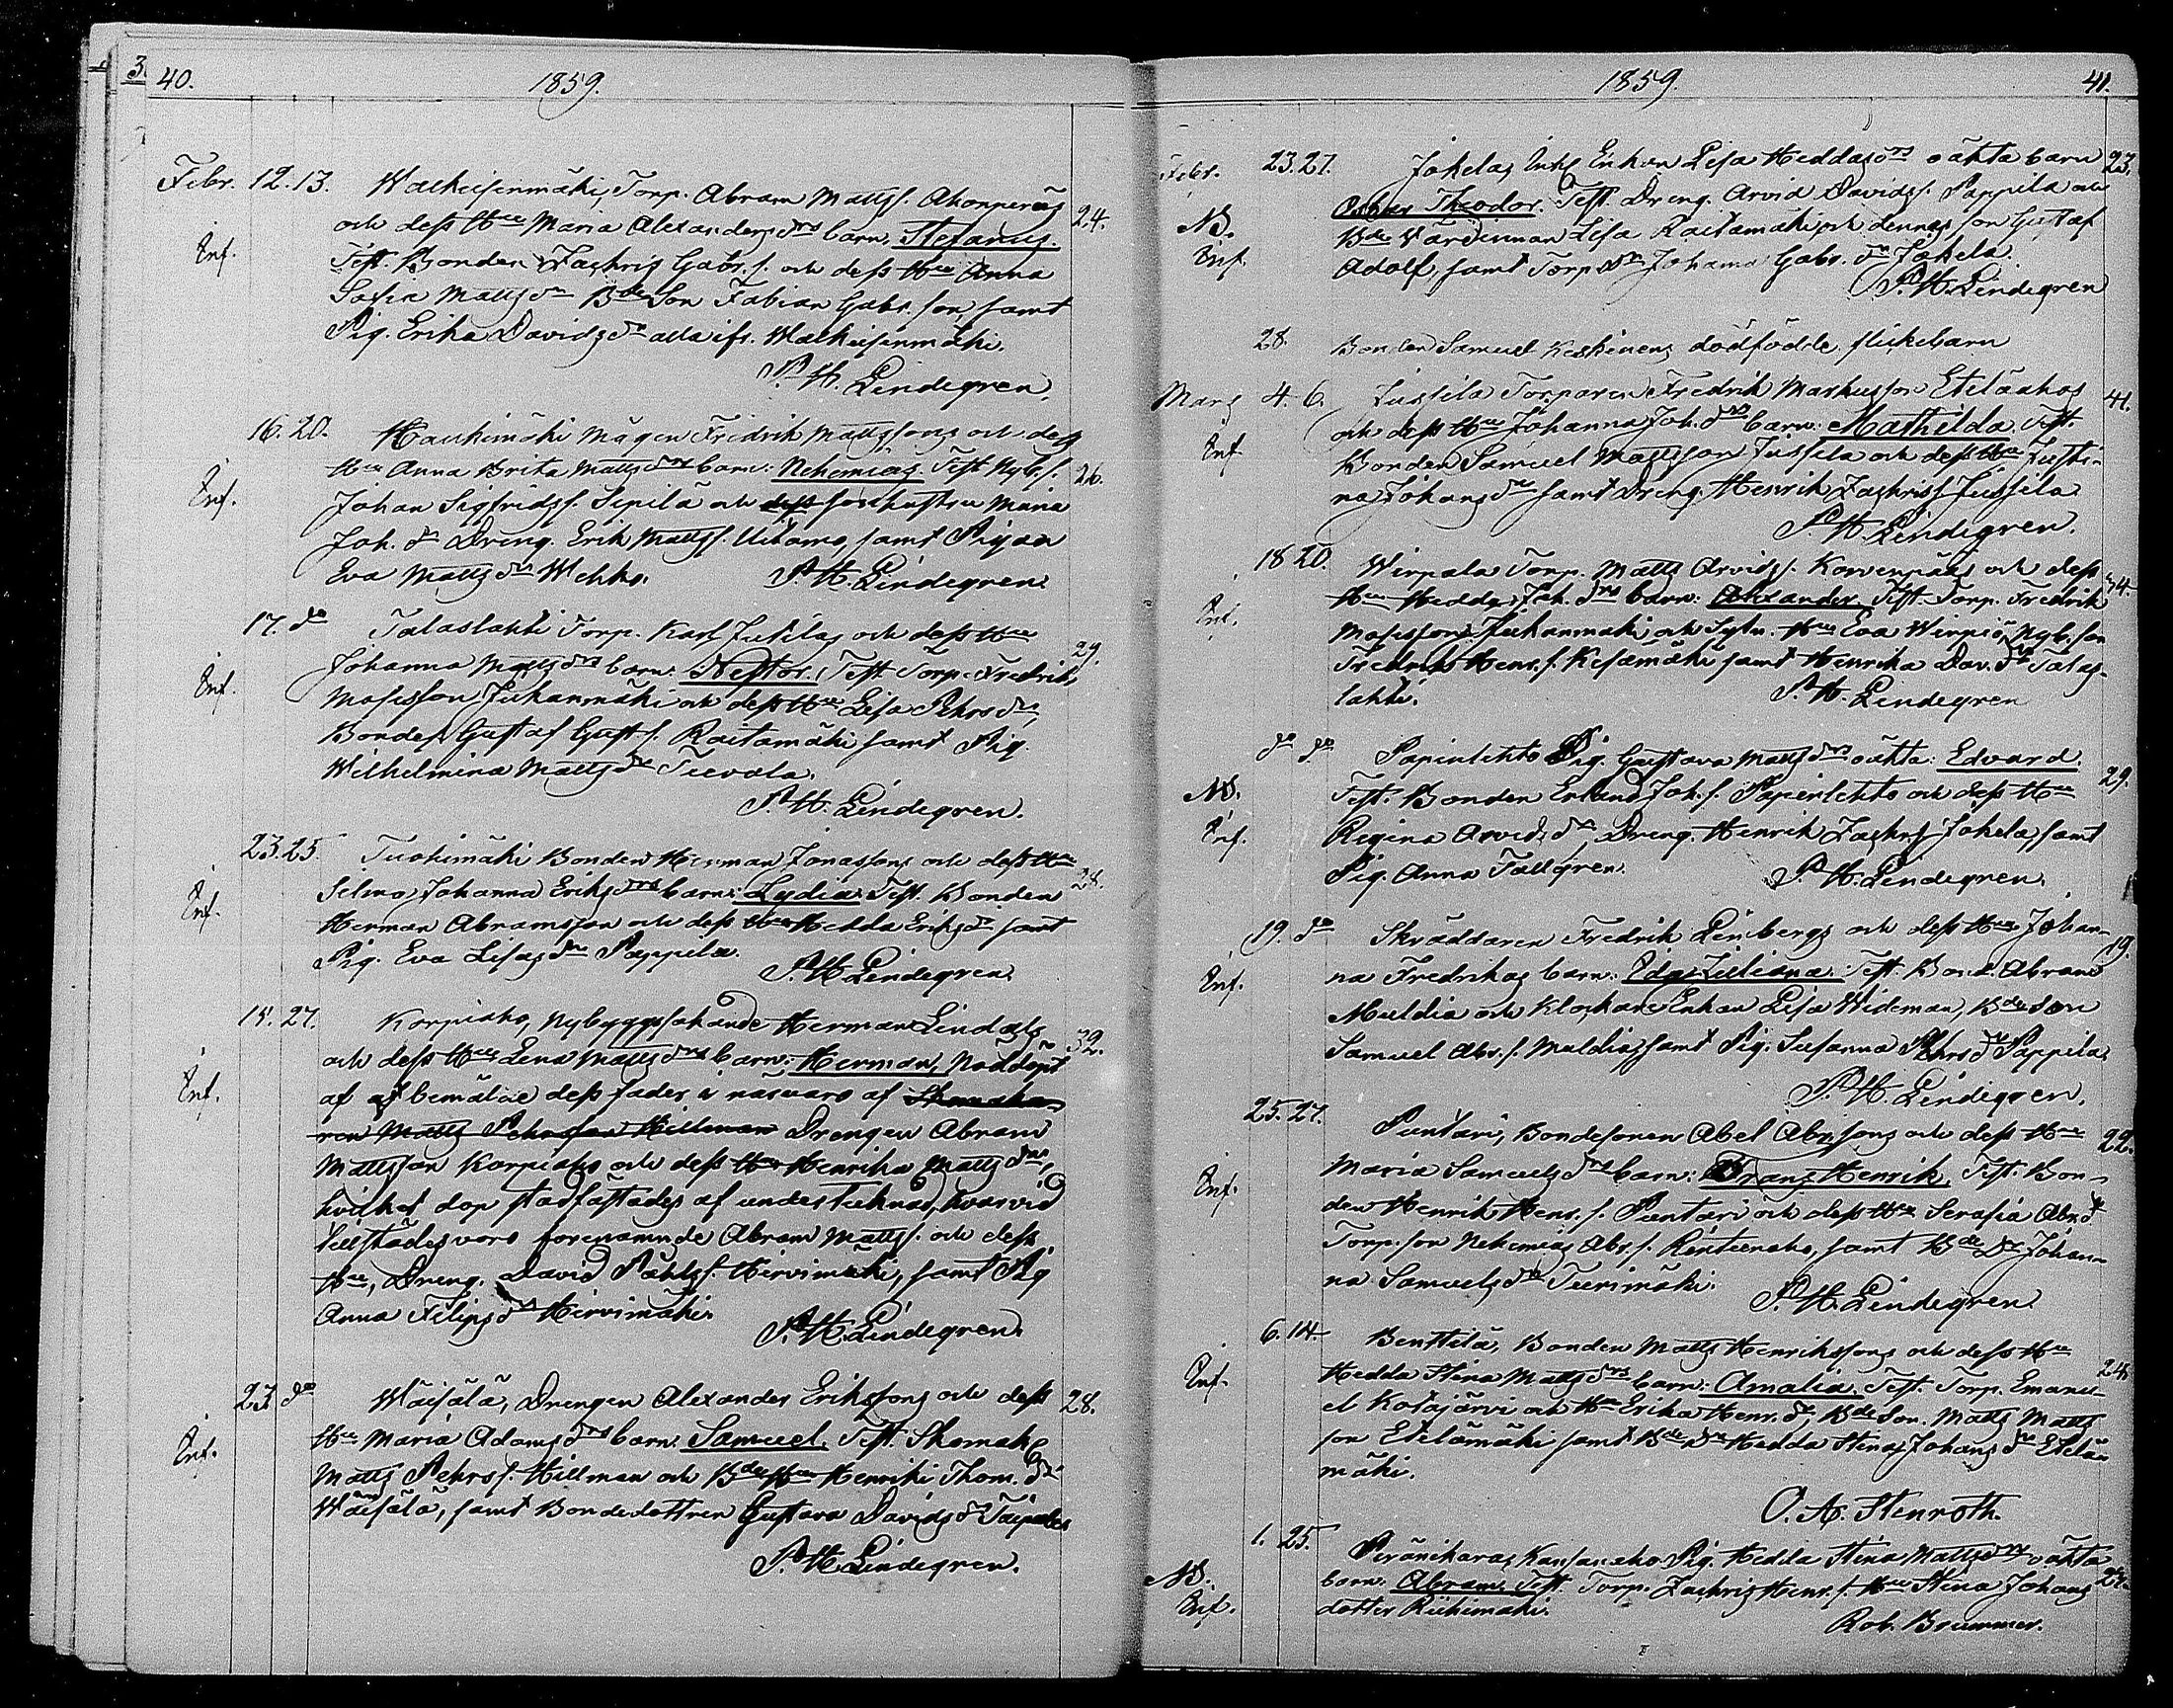 40. 1859.
Febr. 12. 13. Walkeisenmäki, Torp. Abram Matts f. Ahonperäs
och dess Hu Maria Alexandersdrs barn: Stefanus. 24.
Inf. Test. Bonden Zachris Gabr. s. och dess Hu Anna
Sofia Mattsdr Bde Son Fabian Gabr. son, samt
Pig. Erika Davidsdr alla ifr. Walkeisenmäki.
P. H. Lindegren.
16. 20. Haukimäki Mågen Fredrik Mattssons och dess
Hu Anna Brita Mattsdrs barn: Nehemias. Test. Nyb. s. 26.
Inf. Johan Sigfrids s. Sipilä och dess Maria
Joh. dr Dreng. Erik Matts s. Uitamo, samt Pigan
Eva Mattsdr Wehko. P. H. Lindegren.
17. do Talaslahti Torp. Karl Jukilas och dess Hus
Johanna Mattsdrs barn: Nestor. Test. Torp. Fredrik 29.
Inf. Mosisson Juhanmäki och dess Hu Lisa Pehrsdr,
Bondes. Gustaf Gust. s. Raitamäki samt Pig.
Wilhelmina Mattsdr Teevala.
P. H. Lindegren.
23. 25. Tuohimäki Bonden Herman Jonassons och dess Hu
Selma Johanna Eriksdrs barn: Lydia. Test. Bonden 28.
Inf. Herman Abramsson och dess Hu Hedda Eriksdr samt
Pig. Eva Lisa dr Pappila.
P. H. Lindegren.
15. 27. Korpiaho, Nybyggs Herman Lindals
och dess Hus Lena Mattsdrs barn: Herman, Nöddöpt 32.
Inf. af bemälde dess fader i närvaro af Skomaka-
ren Matts Pehrsson Hillman Drengen Abram
Mattsson Korpiaho och dess Hu Henrika Mattsdr,
hvilket dop stadfästades af undertecknad, hvarvid
tillstädes voro förenämnde Abram Matts s. och dess
Hu, Dreng. David Pähls s. Hirvimäki, samt Pig
Anna Filipsdr Hirvimäki.
P. H. Lindegren.
23 do Wäisälä, Drengen Alexander Erikssons och dess 28.
Hu Maria Adamsdrs barn: Samuel. Test. Skomak.
Inf. Matts Pehrs s. Hillman och Bde Hu Henrika Thom. dr
Wäisälä, samt Bondedottren Gustava Davidsdr Taipale
P. H. Lindegren.
1859. 41.
Febr. 23. 27. Jokelas Inh. Enkan Lisa Heddas drs oäkta barn 23.
Oskar Theodor. Test. Dreng. Arvid Davids s. Pappila och
NB. Bde Värdinnan Lisa Raitamäki och dennas son Gustaf
Inf. Adolf, samt Torp dr Johanna Gabr. dr Jokela.
P. H. Lindegren
28. Bonden Samuel Keskinens dödfödde flickebarn
Mars 4. 6. Jussila Torparen Fredrik Markusson Eteläahos 41.
och dess Hu Johanna Joh. drs barn: Mathilda. Test.
Inf. Bonden Samuel Mattsson Jussila och dess Hu Justi-
na Johansdr samt Dreng. Henrik Zachris s. Jussila
P. H. Lindegren.
18 20. Wirpala Torp. Matts Arvids s. Korvenpääs och dess
Hu Hedda Joh. drs barn: Alexander. Test. Torp. Fredrik 34.
Inf. Mosisson Juhanmäki och Sytn. Hu Eva Wirpiö, Nyb. son
Fredrik Henr. s. Kesämäki samt Henrika Dav. dr Talas-
lahti. P. H. Lindegren
do do Papinlehto Pig. Gustava Mattsdrs oäkta: Edvard. 29.
NB. Test. Bonden Erland Joh. s. Papinlehto och dess Hu
Inf. Regina Arvidsdr, Dreng. Henrik Zachrs. Jokela, samt
Pig. Anna Tallgren. P. H. Lindegren.
19. do Skräddaren Fredrik Linbergs och dess Hus Johan-
na Fredrikas barn: Ida Juliana. Test. Bond. Abram 19.
Inf. Muldia och Klockare Enkan Lisa Wideman, Bde Son
Samuel Abr. s. Muldia, samt Pig. Susanna Pehrsdr Pappila,
P. H. Lindegren.
25. 27. Puntari, Bondesonen Abel Abr. sons och dess Hu
Maria Samuelsdrs barn: Frans Henrik. Test. Bon- 22.
Inf. den Henrik Henr. s. Puntari och dess Hu Serafia Abr. dr
Torp. son Nehemias Abr. s. Rinteenaho, samt Bde Dr Johan-
na Samuelsdr Teerimäki.
P. H. Lindegren.
6. 14. Benttilä, Bonden Matts Henrikssons och dess Hu
Hedda Stina Mattsdrs barn: Amalia. Test. Torp. Emanu- 24.
Inf. el Kotajärvi och Hu Erika Henr. dr, Bde Son. Matts Matts
son Etelämäki samt Bde Dr Hedda Stina Johansdr Etelä-
mäki.
O. A. Stenroth.
1. 25. Peränikaras Kansaneho Pig. Hedda Stina Mattsdrs oäkta
NB. barn: Abram. Test. Torp. Zachris Henr. s. Hu Stina Johans 27.
Inf. dotter Riihimäki.
Rob. Brummer.